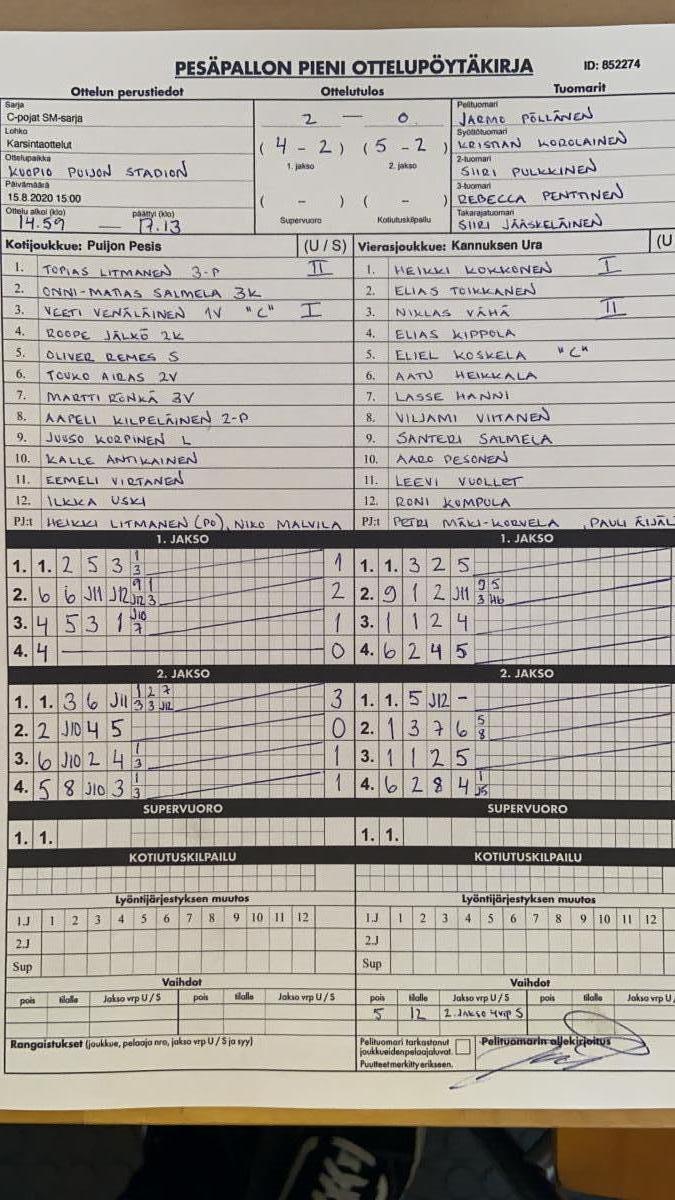 PESÄPALLON PIENI OTTELUPÖYTÄKIRJA ID: 852274
Ottelun perustiedot Ottelutulos Tuomarit
Sarja
C-pojat SM-sarja
Lohko
Karsintaottelut
Ottelupaikka
KUOPIO PUIJON STADION
Päivämäärä
15.8.2020 15:00
Ottelu alkoi (klo) päättyi (klo)
14.59 — 17.13
2 — 0
( 4 - 2 ) ( 5 - 2 )
1. jakso 2. jakso
( - ) ( - )
Supervuoro Kotiutuskilpailu
Pelituomari
JARMO PÖLLÄNEN
Syöttötuomari
KRISTIAN KOROLAINEN
2-tuomari
SIIRI PULKKINEN
3-tuomari
REBECCA PENTTINEN
Takarajatuomari
SIIRI JÄÄSKELÄINEN
Kotijoukkue: Puijon Pesis (U / S)
1. TOPIAS LITMANEN 3-P II
2. ONNI-MATIAS SALMELA 3K
3. VEETI VENÄLÄINEN 1V "C" I
4. ROOPE JÄLKÖ 2K
5. OLIVER REMES S
6. TOUKO AIRAS 2V
7. MARTTI RÖNKÄ 3V
8. AAPELI KILPELÄINEN 2-P
9. JUUSO KORPINEN L
10. KALLE ANTIKAINEN
11. EEMELI VIRTANEN
12. ILKKA USKI
PJ:t HEIKKI LITMANEN (PO), NIKO MALVILA
Vierasjoukkue: Kannuksen Ura (U
1. HEIKKI KOKKONEN I
2. ELIAS TOIKKANEN
3. NIKLAS VÄHÄ II
4. ELIAS KIPPOLA
5. ELIEL KOSKELA "C"
6. AATU HEIKKALA
7. LASSE HANNI
8. VILJAMI VIITANEN
9. SANTERI SALMELA
10. AARO PESONEN
11. LEEVI VUOLLET
12. RONI KUMPULA
PJ:t PETRI MÄKI-KORVELA , PAULI ÄIJÄL
1. JAKSO
1. 1. 2 5 3 1 3 1
2. 6 6 J11 J12 9 J12 1 3 2
3. 4 5 3 1 J10 7 1
4. 4 0
2. JAKSO
1. 1. 3 6 J11 1 3 2 3 7 J12 3
2. 2 J10 4 5 0
3. 6 J10 2 4 1 3 1
4. 5 8 J10 3 1 3 1
SUPERVUORO
1. 1.
KOTIUTUSKILPAILU
1. JAKSO
1. 1. 3 2 5
2. 9 1 2 J11 9 3 5
3. 1 1 2 4
4. 6 2 4 5
2. JAKSO
1. 1. 5 J12 -
2. 1 3 7 6 5 8
3. 1 1 2 5
4. 6 2 8 4 1 J5
SUPERVUORO
1. 1.
KOTIUTUSKILPAILU
Lyöntijärjestyksen muutos
1.J 1 2 3 4 5 6 7 8 9 10 11 12
2.J
Sup
Vaihdot
pois tilalle Jakso vrp U / S pois tilalle Jakso vrp U / S
Rangaistukset (joukkue, pelaaja nro, jakso vrp U / S ja syy)
Lyöntijärjestyksen muutos
1.J 1 2 3 4 5 6 7 8 9 10 11 12
2.J
Sup
Vaihdot
pois tilalle Jakso vrp U / S pois tilalle Jakso vrp U
5 12 2. JAKSO 4vrp S
Pelituomari tarkastanut
joukkueiden pelaajaluvat.
Puutteet merkitty erikseen.
Pelituomarin allekirjoitus